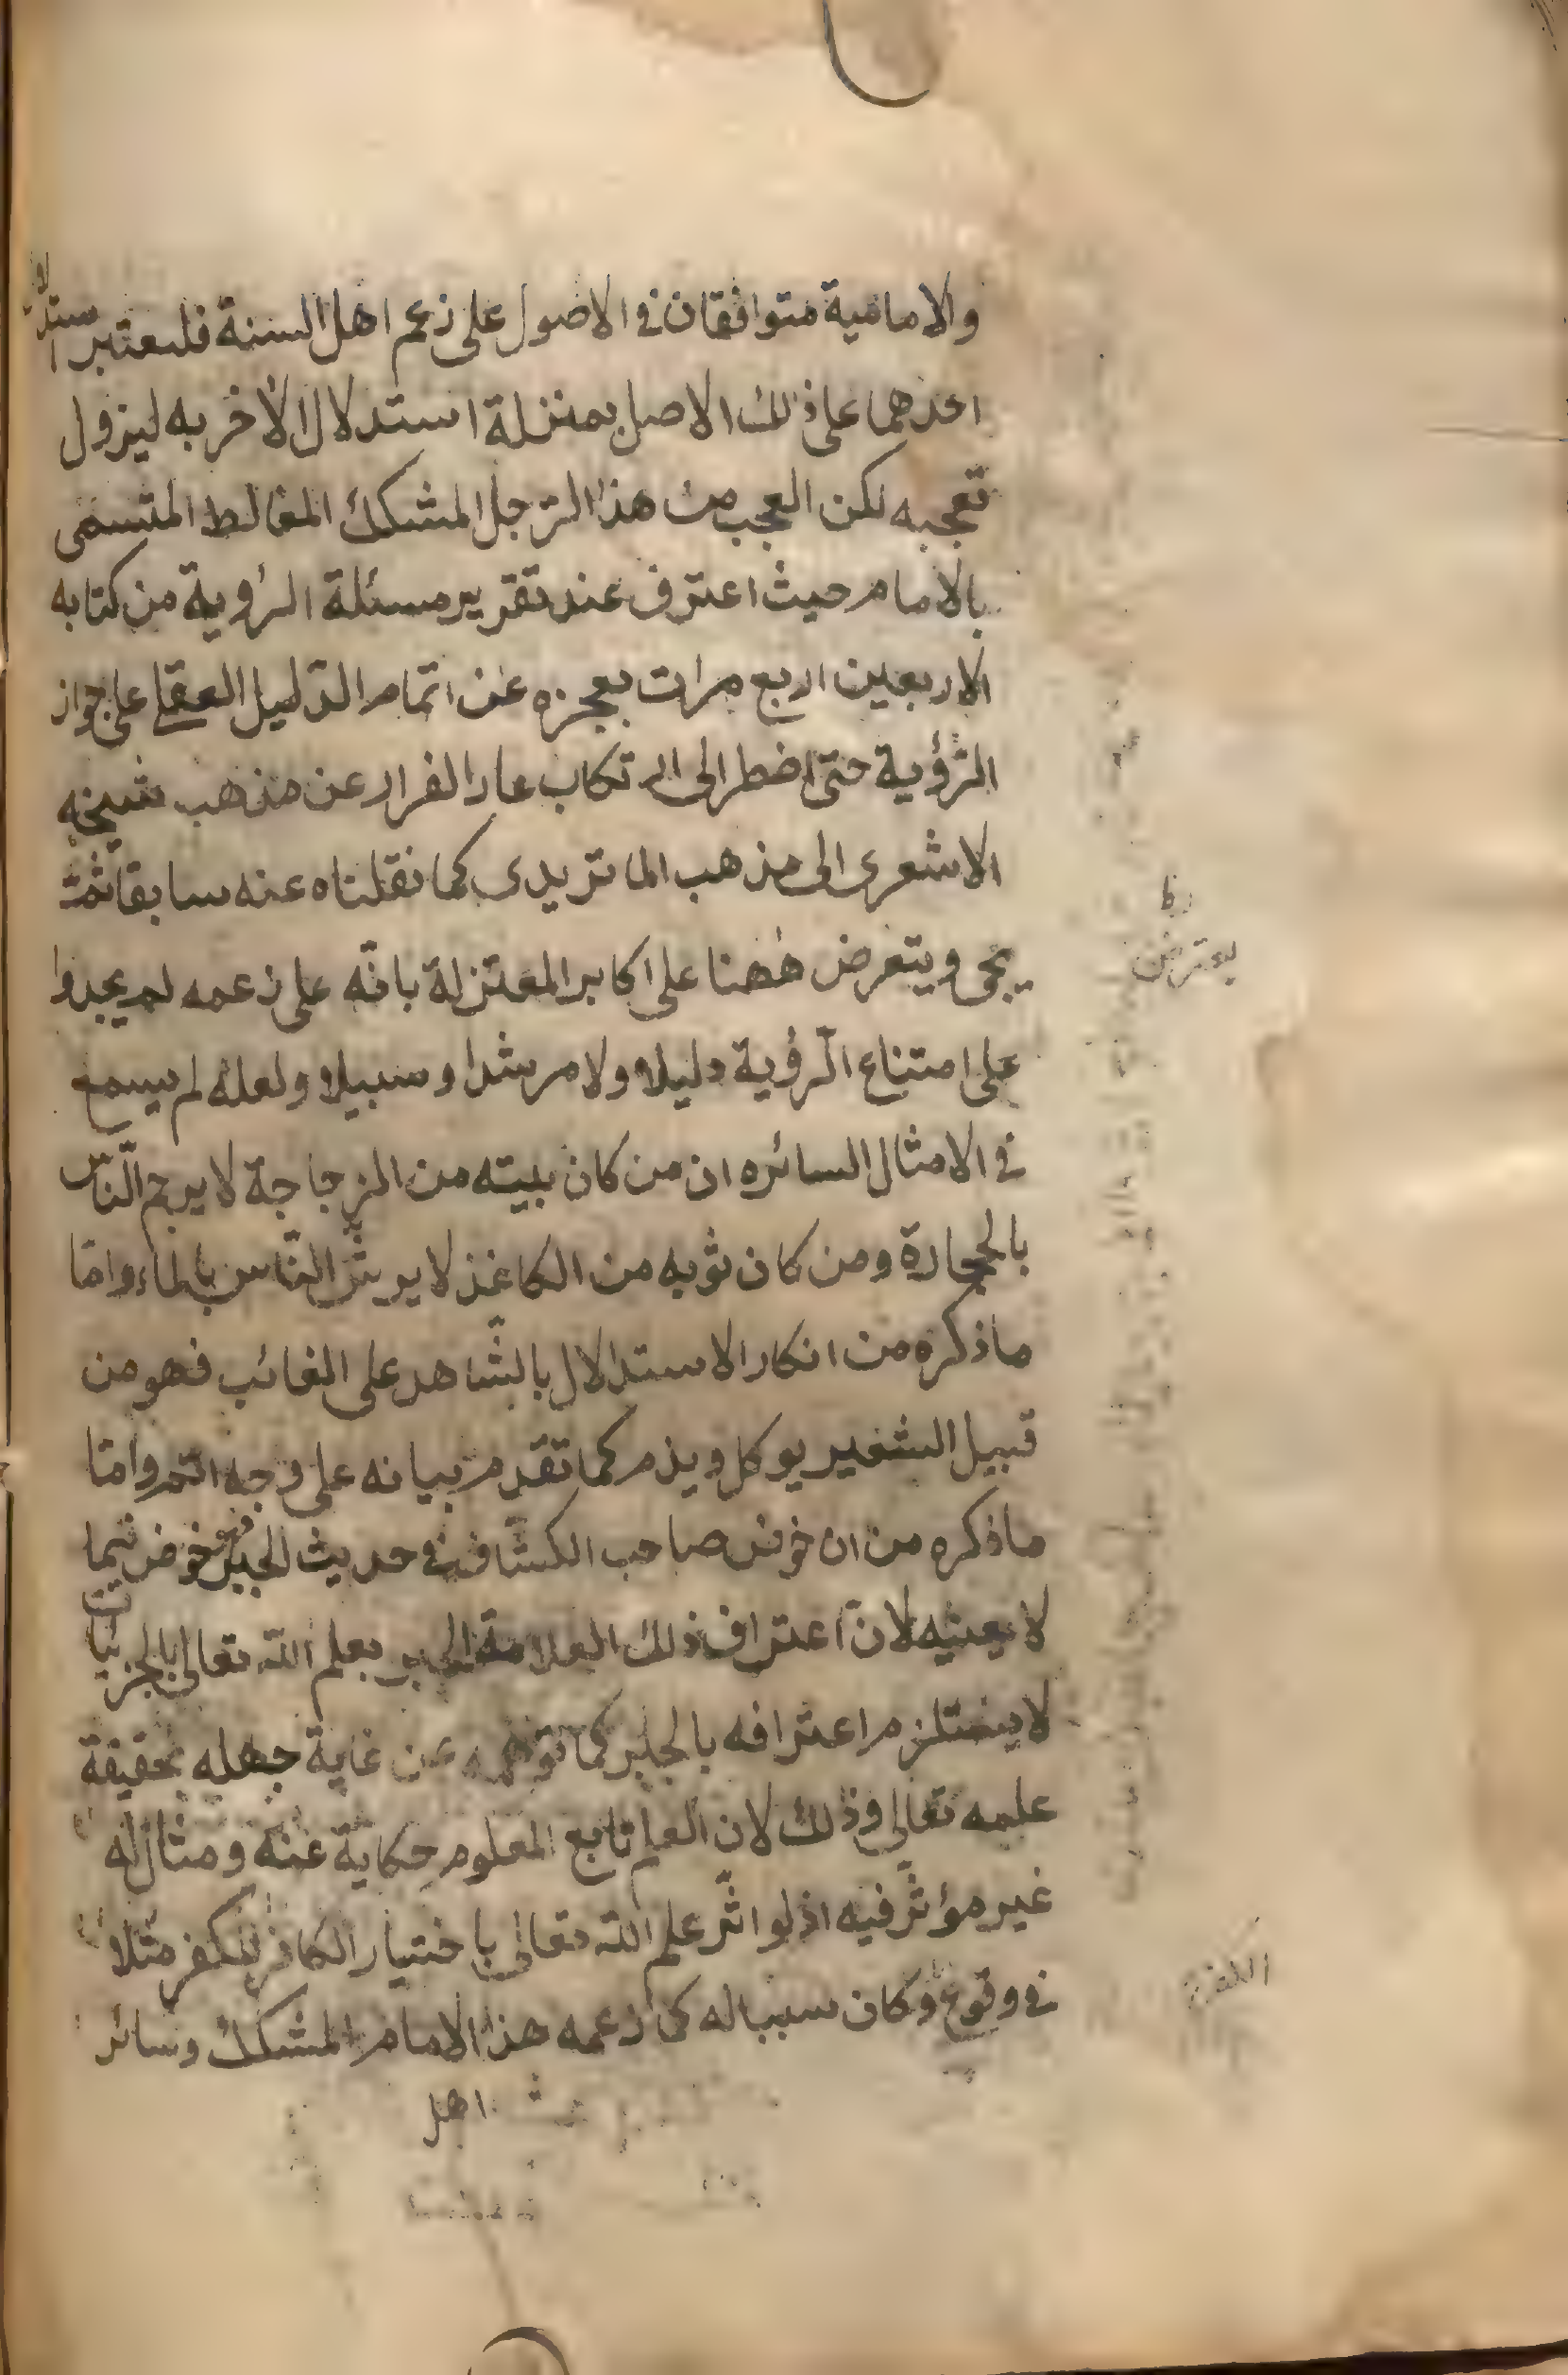 والامامية متوافقان في الاصول على زعم اهل السنة فليعتبر استدلال
احدهما على ذلك الاصل بمنزلة استدلال الآخر به ليزول
تعجبه لكن العجب من هذا الرّجل المشكك المغالط المتسمى
بالامام حيث اعترف عند تقرير مسئلة الرؤية من كتابه
الاربعين اربع مرات بعجزه عن اتمام الدّليل العقلي على جواز
الرّؤية حتى اضطر الى ارتكاب عار الفرار عن مذهب شيخه
الاشعرى الى مذهب الماتريدى كما نقلناه عنه سابقا ثمّ
يجى ويتعرض ههنا على اكابر المعتزلة بانّه على زعمه لم يجدوا
يعترض
على امتناع الرّؤية دليلا ولا مرشدا وسبيلا ولعله لم يسمع
في الامثال السائره ان من كان بيته من الزجاجة لا يرجم النّاس
بالحجارة ومن كان ثوبه من الكاغذ لا يرشّ النّاس بالماء وامّا
ماذكره من انكار الاستدلال بالشّاهد على الغائب فهو من
قبيل الشعير يوكل ويذم كما تقدّم بيانه على وجه اتمّ وامّا
ماذكره من ان خوض صاحب الكشّاف في حديث الجبر خوض فيما
لا يعنيه لانّ اعتراف ذلك العلامة الحبر بعلم الله تعالى بالجزئيات
لا يستلزم اعترافه بالجبر كما توهمه عن غاية جهله بحقيقة
علمه تعالى وذلك لان العلم تابع المعلوم حكاية عنه ومثال له
غير مؤثّر فيه اذ لو اثّر علم الله تعالى باختيار الكافر للكفر مثلا
في وقوع وكان سببا له كما زعمه هذا الامام المشكك وسائر
الكفر
اهل